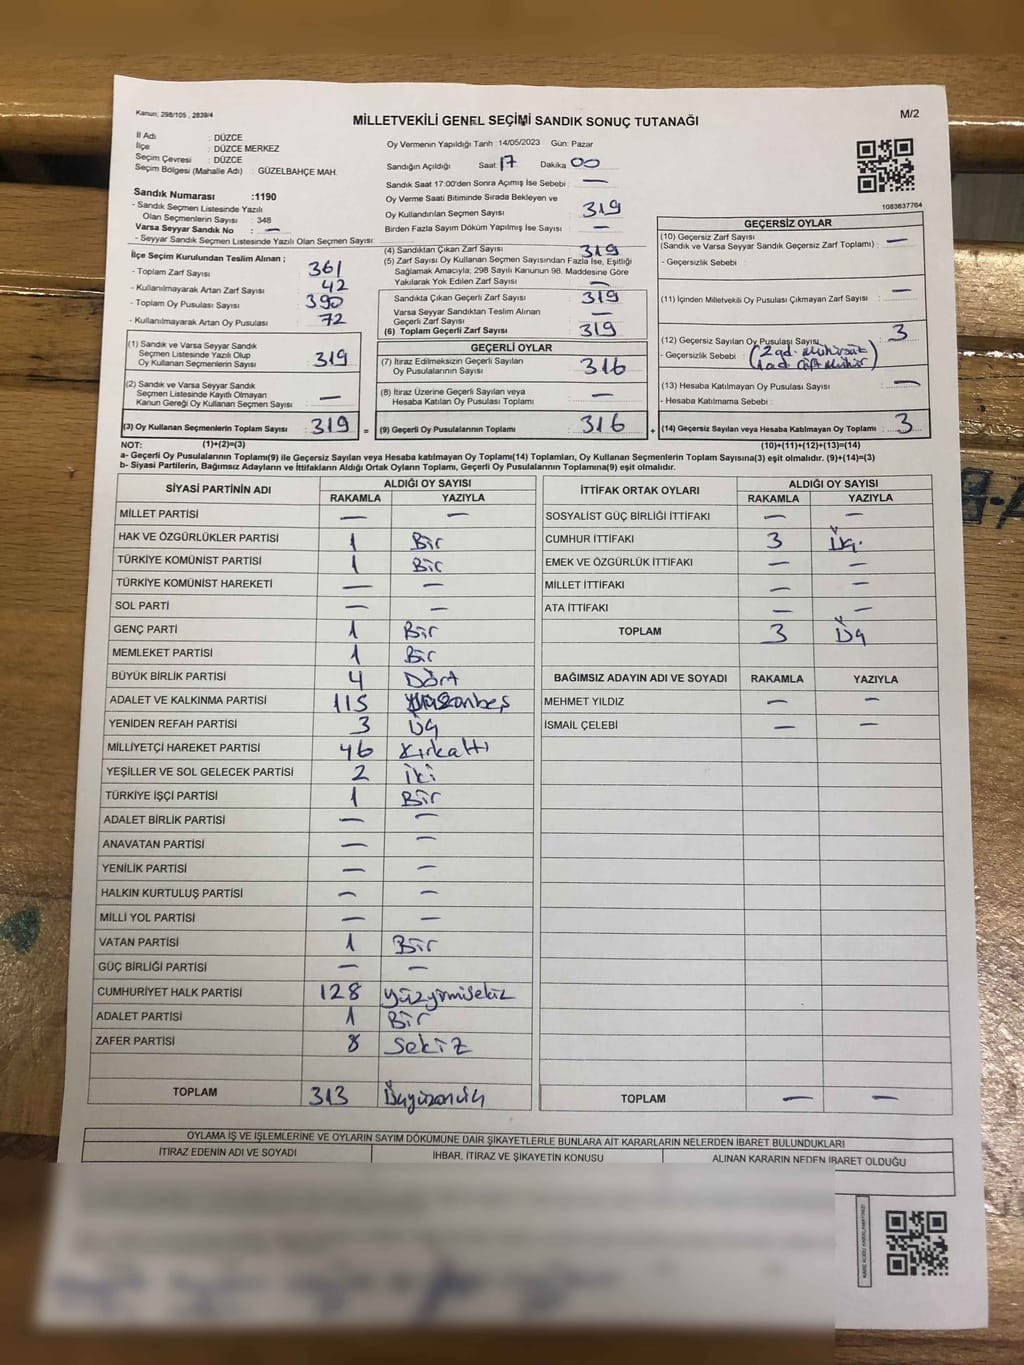 Kanun; 298/105 , 2839/4
MİLLETVEKİLİ GENEL SEÇİMİ SANDIK SONUÇ TUTANAĞI
M/2
İl Adı : DÜZCE
İlçe : DÜZCE MERKEZ
Seçim Çevresi : DÜZCE
Seçim Bölgesi (Mahalle Adı) : GÜZELBAHÇE MAH.
Sandık Numarası :1190
- Sandık Seçmen Listesinde Yazılı
Olan Seçmenlerin Sayısı : 348
Varsa Seyyar Sandık No : —
- Seyyar Sandık Seçmen Listesinde Yazılı Olan Seçmen Sayısı:
İlçe Seçim Kurulundan Teslim Alınan ;
- Toplam Zarf Sayısı 361
- Kullanılmayarak Artan Zarf Sayısı 42
- Toplam Oy Pusulası Sayısı 390
- Kullanılmayarak Artan Oy Pusulası 72
(1) Sandık ve Varsa Seyyar Sandık
Seçmen Listesinde Yazılı Olup
Oy Kullanan Seçmenlerin Sayısı 319
(2) Sandık ve Varsa Seyyar Sandık
Seçmen Listesinde Kayıtlı Olmayan
Kanun Gereği Oy Kullanan Seçmen Sayısı —
(3) Oy Kullanan Seçmenlerin Toplam Sayısı 319 =
Oy Vermenin Yapıldığı Tarih :14/05/2023 Gün: Pazar
Sandığın Açıldığı Saat: 17 Dakika 00
Sandık Saat 17:00'den Sonra Açılmış İse Sebebi : —
Oy Verme Saati Bitiminde Sırada Bekleyen ve
Oy Kullandırılan Seçmen Sayısı 319
Birden Fazla Sayım Döküm Yapılmış İse Sayısı —
(4) Sandıktan Çıkan Zarf Sayısı 319
(5) Zarf Sayısı Oy Kullanan Seçmen Sayısından Fazla İse, Eşitliği
Sağlamak Amacıyla; 298 Sayılı Kanunun 98. Maddesine Göre
Yakılarak Yok Edilen Zarf Sayısı —
Sandıkta Çıkan Geçerli Zarf Sayısı 319
Varsa Seyyar Sandıktan Teslim Alınan
Geçerli Zarf Sayısı —
(6) Toplam Geçerli Zarf Sayısı 319
GEÇERLİ OYLAR
(7) İtiraz Edilmeksizin Geçerli Sayılan
Oy Pusulalarının Sayısı 316
(8) İtiraz Üzerine Geçerli Sayılan veya
Hesaba Katılan Oy Pusulası Toplamı —
(9) Geçerli Oy Pusulalarının Toplamı 316 +
1083637764
GEÇERSİZ OYLAR
(10) Geçersiz Zarf Sayısı
(Sandık ve Varsa Seyyar Sandık Geçersiz Zarf Toplamı) : —
- Geçersizlik Sebebi :
(11) İçinden Milletvekili Oy Pusulası Çıkmayan Zarf Sayısı : —
(12) Geçersiz Sayılan Oy Pusulası Sayısı 3
- Geçersizlik Sebebi : (2 ad. Mühürsüz
1 ad. Çift Mühür)
(13) Hesaba Katılmayan Oy Pusulası Sayısı : —
- Hesaba Katılmama Sebebi :
(14) Geçersiz Sayılan veya Hesaba Katılmayan Oy Toplamı 3
NOT: (1)+(2)=(3) (10)+(11)+(12)+(13)=(14)
a- Geçerli Oy Pusulalarının Toplamı(9) ile Geçersiz Sayılan veya Hesaba Katılmayan Oy Toplamı(14) Toplamları, Oy Kullanan Seçmenlerin Toplam Sayısına(3) eşit olmalıdır. (9)+(14)=(3)
b- Siyasi Partilerin, Bağımsız Adayların ve İttifakların Aldığı Ortak Oyların Toplamı, Geçerli Oy Pusulalarının Toplamına(9) eşit olmalıdır.
SİYASİ PARTİNİN ADI ALDIĞI OY SAYISI
RAKAMLA YAZIYLA
MİLLET PARTİSİ — —
HAK VE ÖZGÜRLÜKLER PARTİSİ 1 Bir
TÜRKİYE KOMÜNİST PARTİSİ 1 Bir
TÜRKİYE KOMÜNİST HAREKETİ — —
SOL PARTİ — —
GENÇ PARTİ 1 Bir
MEMLEKET PARTİSİ 1 Bir
BÜYÜK BİRLİK PARTİSİ 4 Dört
ADALET VE KALKINMA PARTİSİ 115 Yüzonbeş
YENİDEN REFAH PARTİSİ 3 Üç
MİLLİYETÇİ HAREKET PARTİSİ 46 Kırkaltı
YEŞİLLER VE SOL GELECEK PARTİSİ 2 İki
TÜRKİYE İŞÇİ PARTİSİ 1 Bir
ADALET BİRLİK PARTİSİ — —
ANAVATAN PARTİSİ — —
YENİLİK PARTİSİ — —
HALKIN KURTULUŞ PARTİSİ — —
MİLLİ YOL PARTİSİ — —
VATAN PARTİSİ 1 Bir
GÜÇ BİRLİĞİ PARTİSİ — —
CUMHURİYET HALK PARTİSİ 128 Yüzyirmisekiz
ADALET PARTİSİ 1 Bir
ZAFER PARTİSİ 8 Sekiz
TOPLAM 313 Üçyüzonüç
İTTİFAK ORTAK OYLARI ALDIĞI OY SAYISI
RAKAMLA YAZIYLA
SOSYALİST GÜÇ BİRLİĞİ İTTİFAKI — —
CUMHUR İTTİFAKI 3 Üç.
EMEK VE ÖZGÜRLÜK İTTİFAKI — —
MİLLET İTTİFAKI — —
ATA İTTİFAKI — —
TOPLAM 3 Üç
BAĞIMSIZ ADAYIN ADI VE SOYADI RAKAMLA YAZIYLA
MEHMET YILDIZ — —
İSMAİL ÇELEBİ — —
TOPLAM — —
OYLAMA İŞ VE İŞLEMLERİNE VE OYLARIN SAYIM DÖKÜMÜNE DAİR ŞİKAYETLERLE BUNLARA AİT KARARLARIN NELERDEN İBARET BULUNDUKLARI
İTİRAZ EDENİN ADI VE SOYADI İHBAR, İTİRAZ VE ŞİKAYETİN KONUSU ALINAN KARARIN NEDEN İBARET OLDUĞU